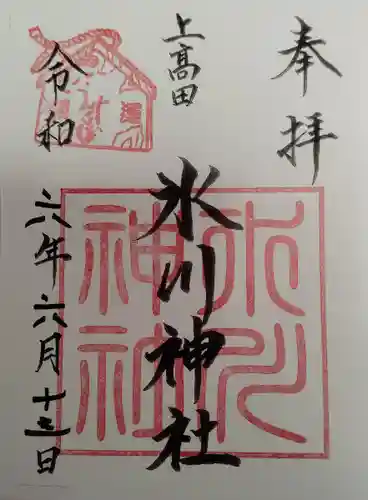 奉拝
上高田
氷川神社
氷川神社
令和
六年六月十三日